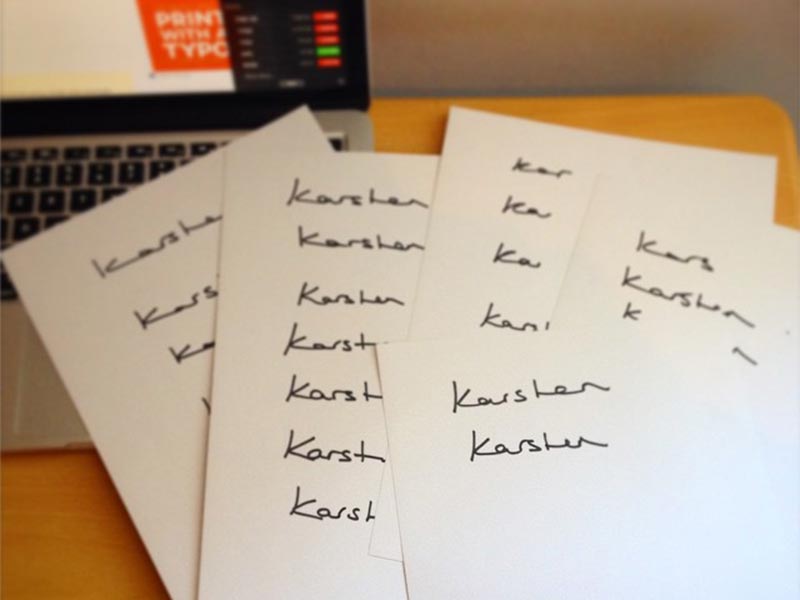 PRINT
WITH A
TYPO
Karshen
Kars
Ka
Karshen
Karshen
Karshen
Karst
Karsh
Karsth
Karsh
Kar
Ka
Ka
Kars
Karshen
K
Karshen
Karshen